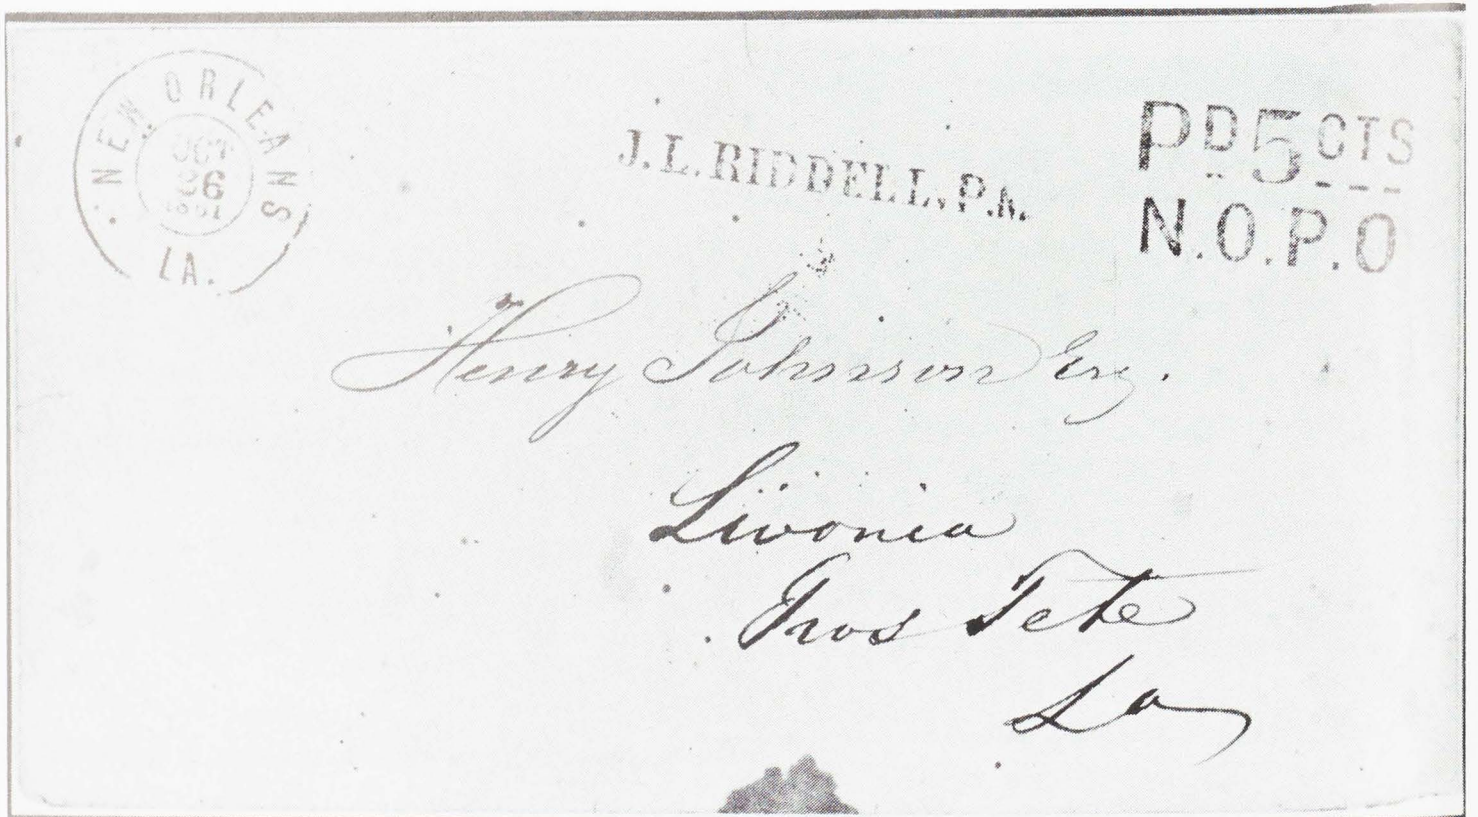 NEW ORLEANS
OCT
26
1861
LA.
J. L. RIDDELL, P.M.
PD 5 CTS
N.O.P.O
Henry Johnson Esq.
Livonia
Gros Tete
La